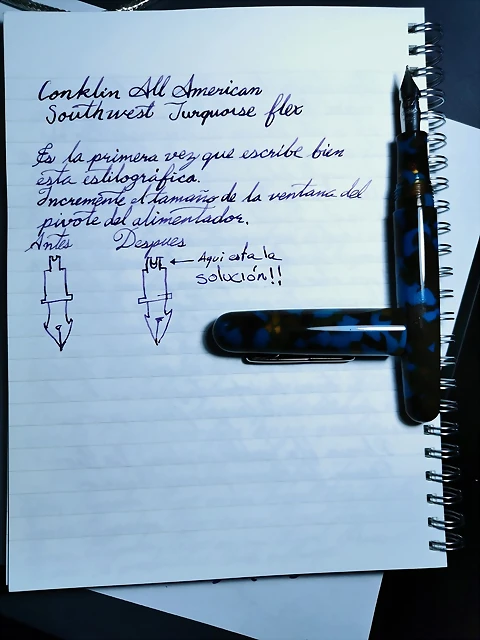 Conklin All American
Southwest Turquoise flex
Es la primera vez que escribe bien
esta estilográfica.
Incremente el tamaño de la ventana del
pivote del alimentador.
Antes Despues
← Aqui esta la
solución!!